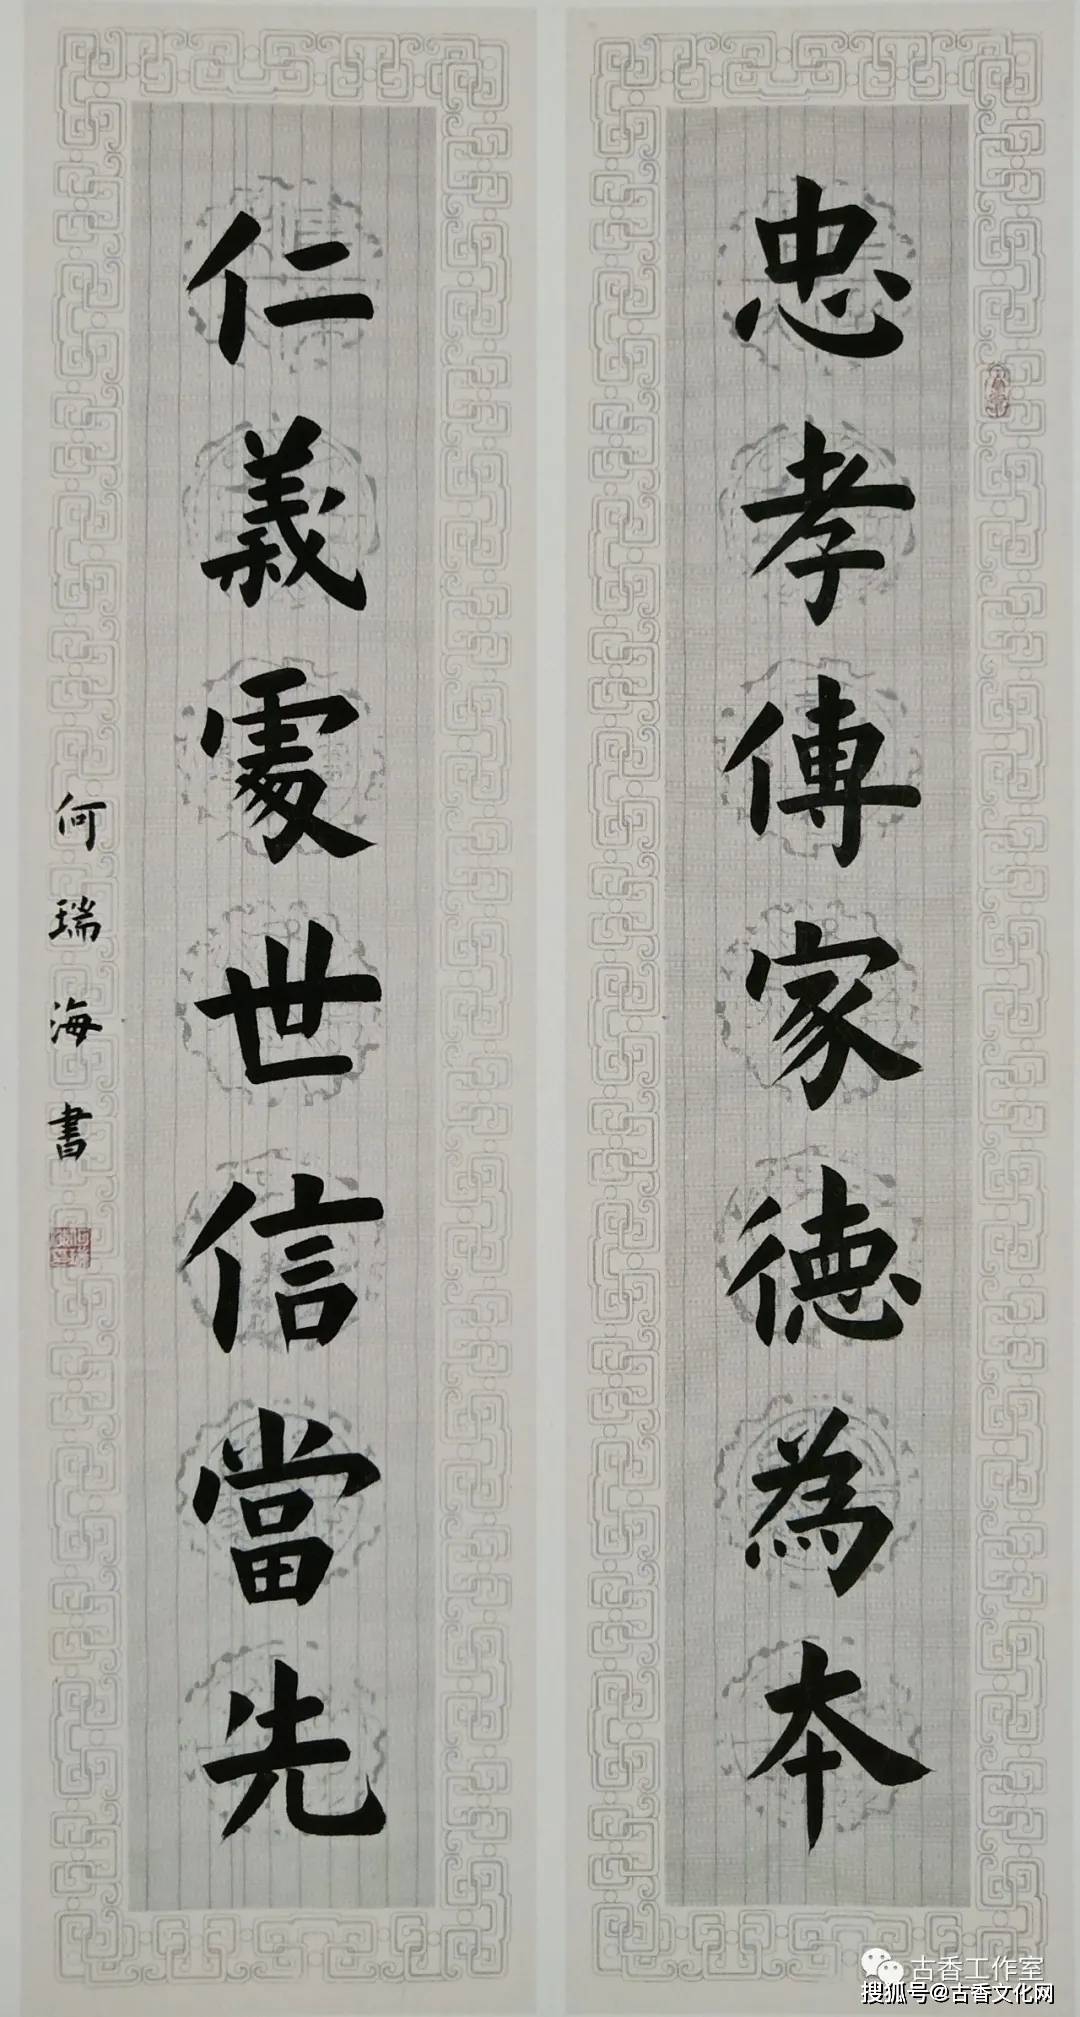 忠孝傳家德為本
仁義處世信當先
何瑞海書
古香工作室
搜狐号@古香文化网